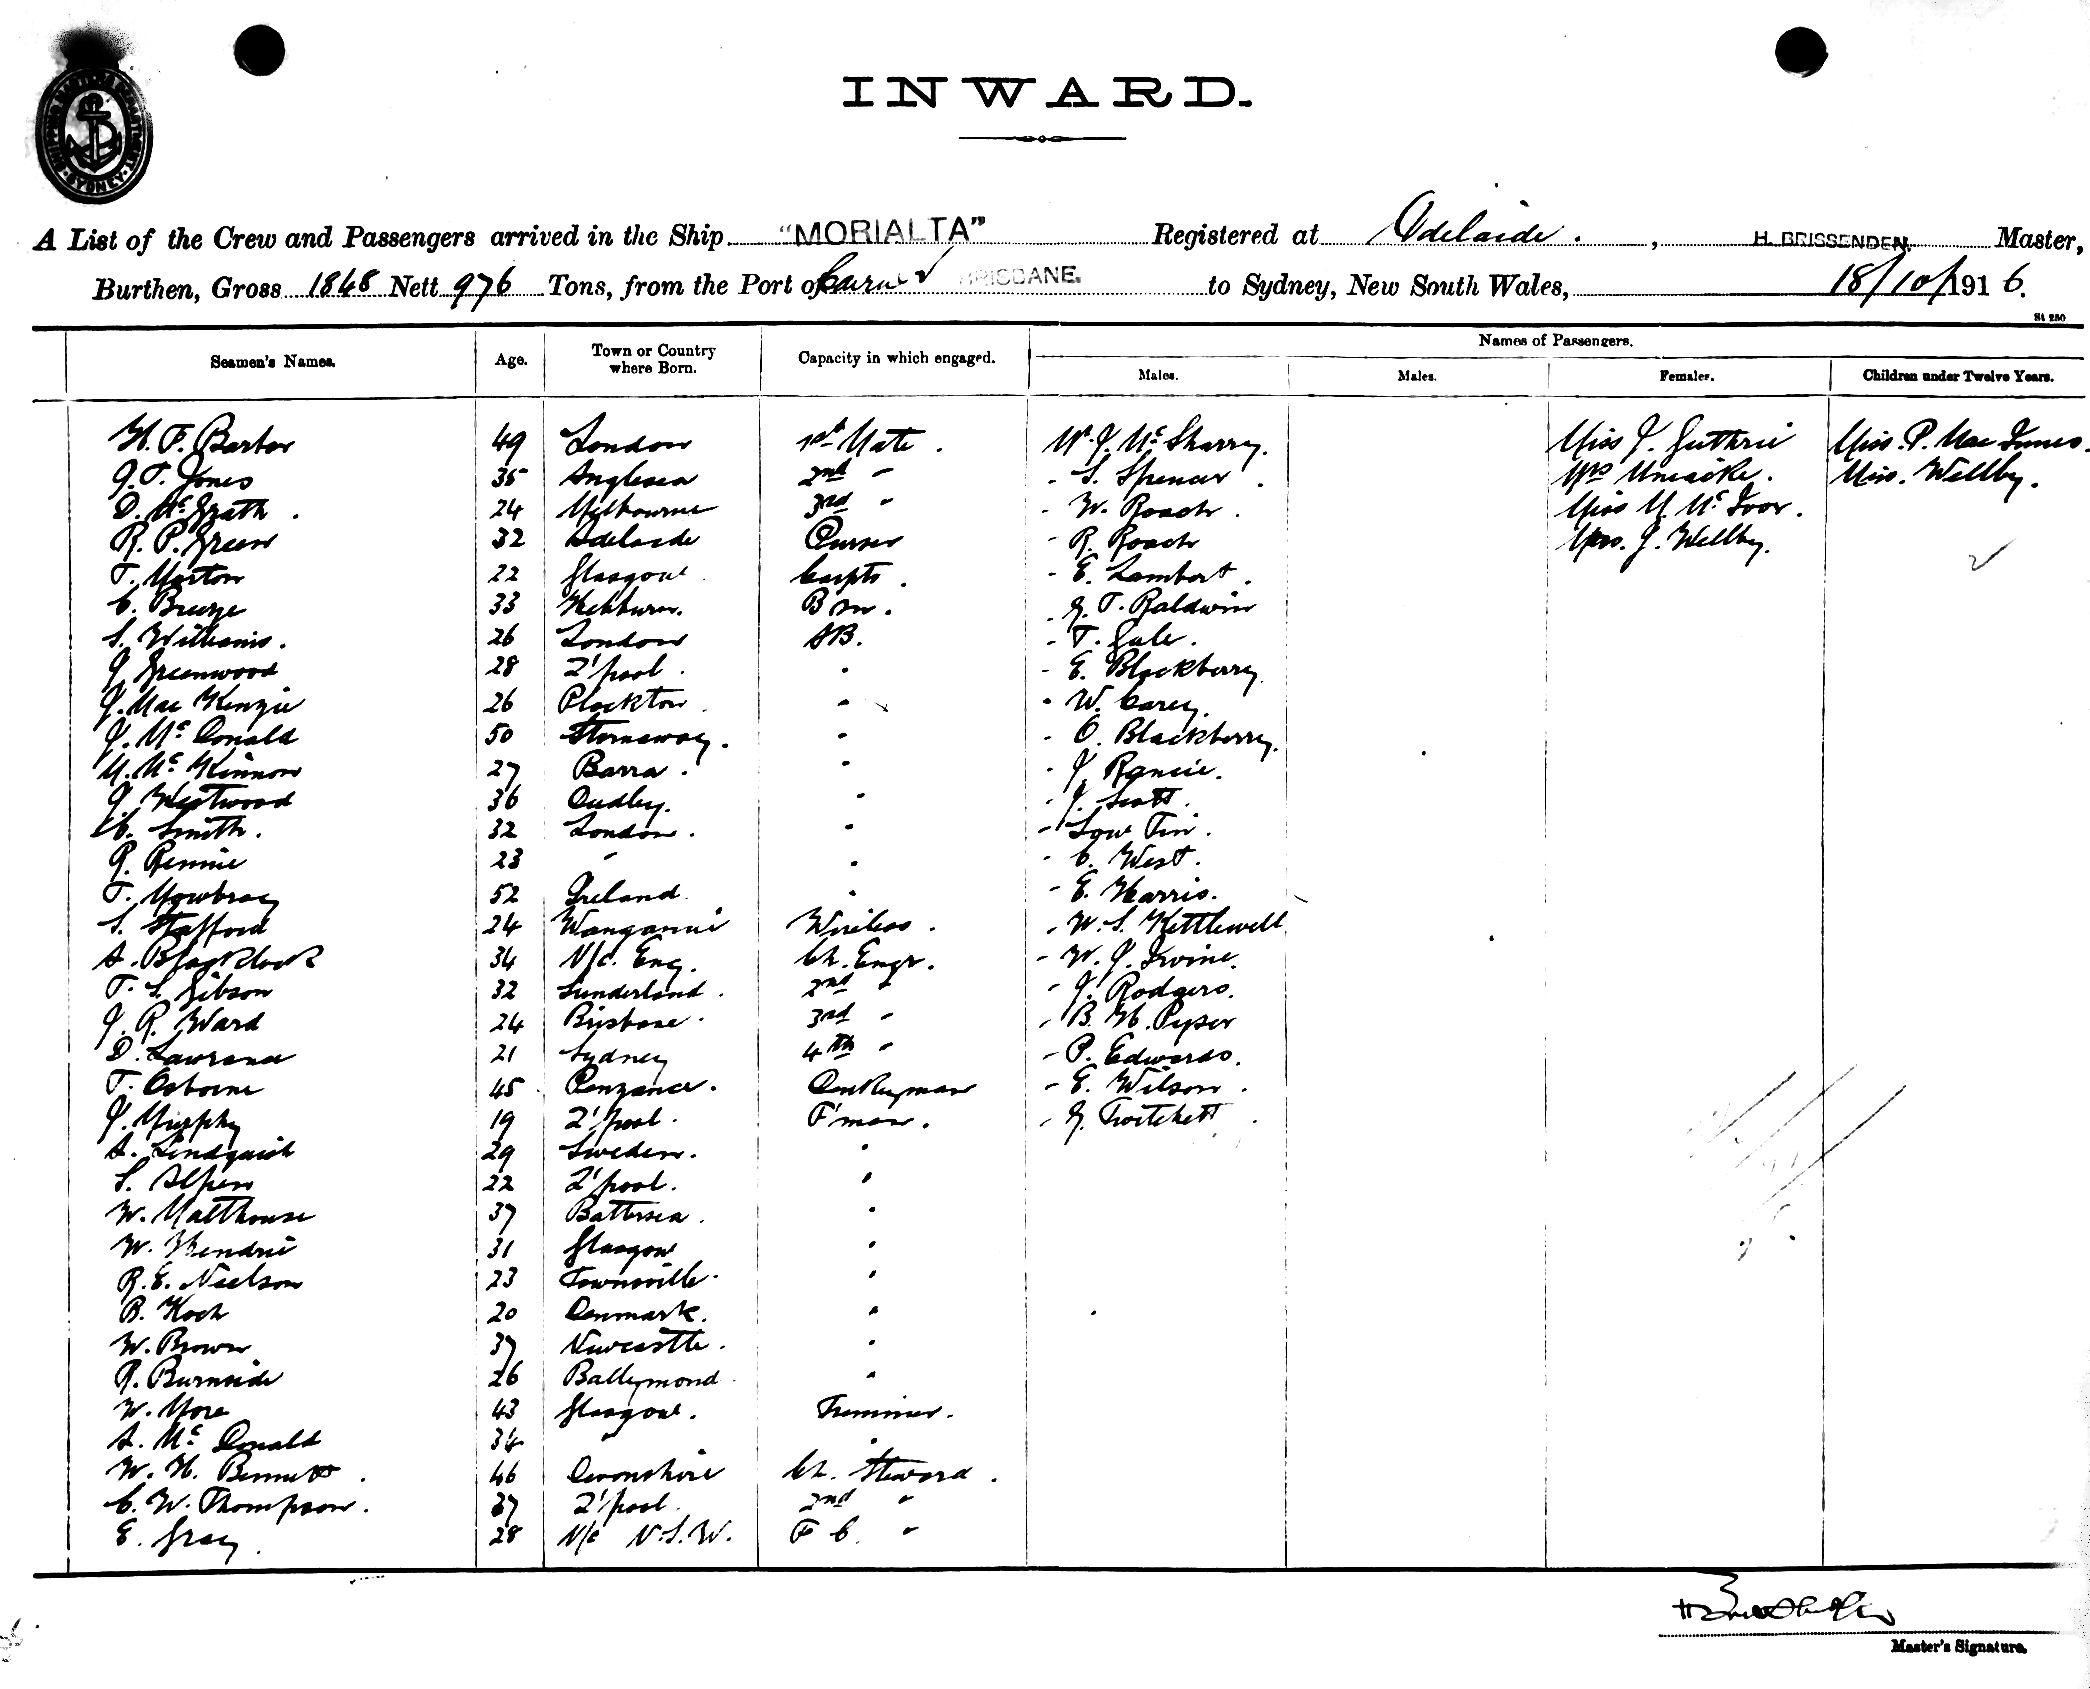 INWARD.
SHIPPING MASTER'S DEPARTMENT SYDNEY
A List of the Crew and Passengers arrived in the Ship "MORIALTA" Registered at Adelaide. , H. BRISSENDEN. Master,
Burthen, Gross 1848 Nett 976 Tons, from the Port of BRISBANE. to Sydney, New South Wales, 18/10/1916.
St 250
Seamen's Names. Age. Town or Country where Born. Capacity in which engaged. Names of Passengers.
Males. Males. Females. Children under Twelve Years.
H. F. Barber 49 London 1st Mate. W. J. McSharry. Miss J. Guthrie Miss. P. Mac Innes.
J. T. Jones 35 Anglesea 2nd " - S. Spencer. Mrs Uniacke. Miss. Wellby.
D. McGrath. 24 Melbourne 3rd " - W. Roach. Miss M. McIvor.
R. P. Green 32 Adelaide Purser - R. Roach Mrs. J. Wellby.
T. Morton 22 Glasgow Carptr. - E. Lambert.
C. Breeze 33 Hebburn. Bsn. - G. T. Baldwin
S. Williams. 26 London AB. - T. Gale.
J Greenwood 28 L'pool. " - E. Blackberry
J. Mac Kenzie 26 Plockton " - W. Carey.
J. McDonald 50 Stornaway. " - O. Blackberry.
M. McKinnon 27 Barra. " - J. Rancie.
J Westwood 36 Dudley. " - J. Scott.
C. Smith. 32 London. " - Low Tin.
R. Rennie 23 " " - C. West.
T. Mowbray 52 Ireland. " - E. Harris.
S. Stafford 24 Wanganui Wireless. - W. S. Kettlewell
A. Blacklock 34 N/c. Eng. Ch. Engr. - W. J. Irvine.
T. S. Gibson 32 Sunderland. 2nd " - J. Rodgers.
J. R. Ward 24 Brisbane. 3rd " - B. H. Pyser
D. Lawrence 21 Sydney 4th " - P. Edwards.
T. Osborne 45 Penzance. Donkeyman - E. Wilson.
J. Murphy 19 L'pool. F'man. - G. Twitchett
A. Lindquist 29 Sweden. "
S. Alpen 22 L'pool. "
W. Malthouse 37 Battersea. "
W. Hendrie 31 Glasgow "
R. E. Neilson 23 Townsville. "
B. Koch 20 Denmark. "
W. Brown 37 Newcastle. "
R. Burnside 26 Ballymond "
W. More 43 Glasgow. Trimmer.
A. McDonald 34 " "
W. H. Bennett. 46 Devonshire Ch. Steward.
C. W. Thompson. 37 L'pool. 2nd "
E. Gray. 28 N/c N.S.W. F C. "
Master's Signature.